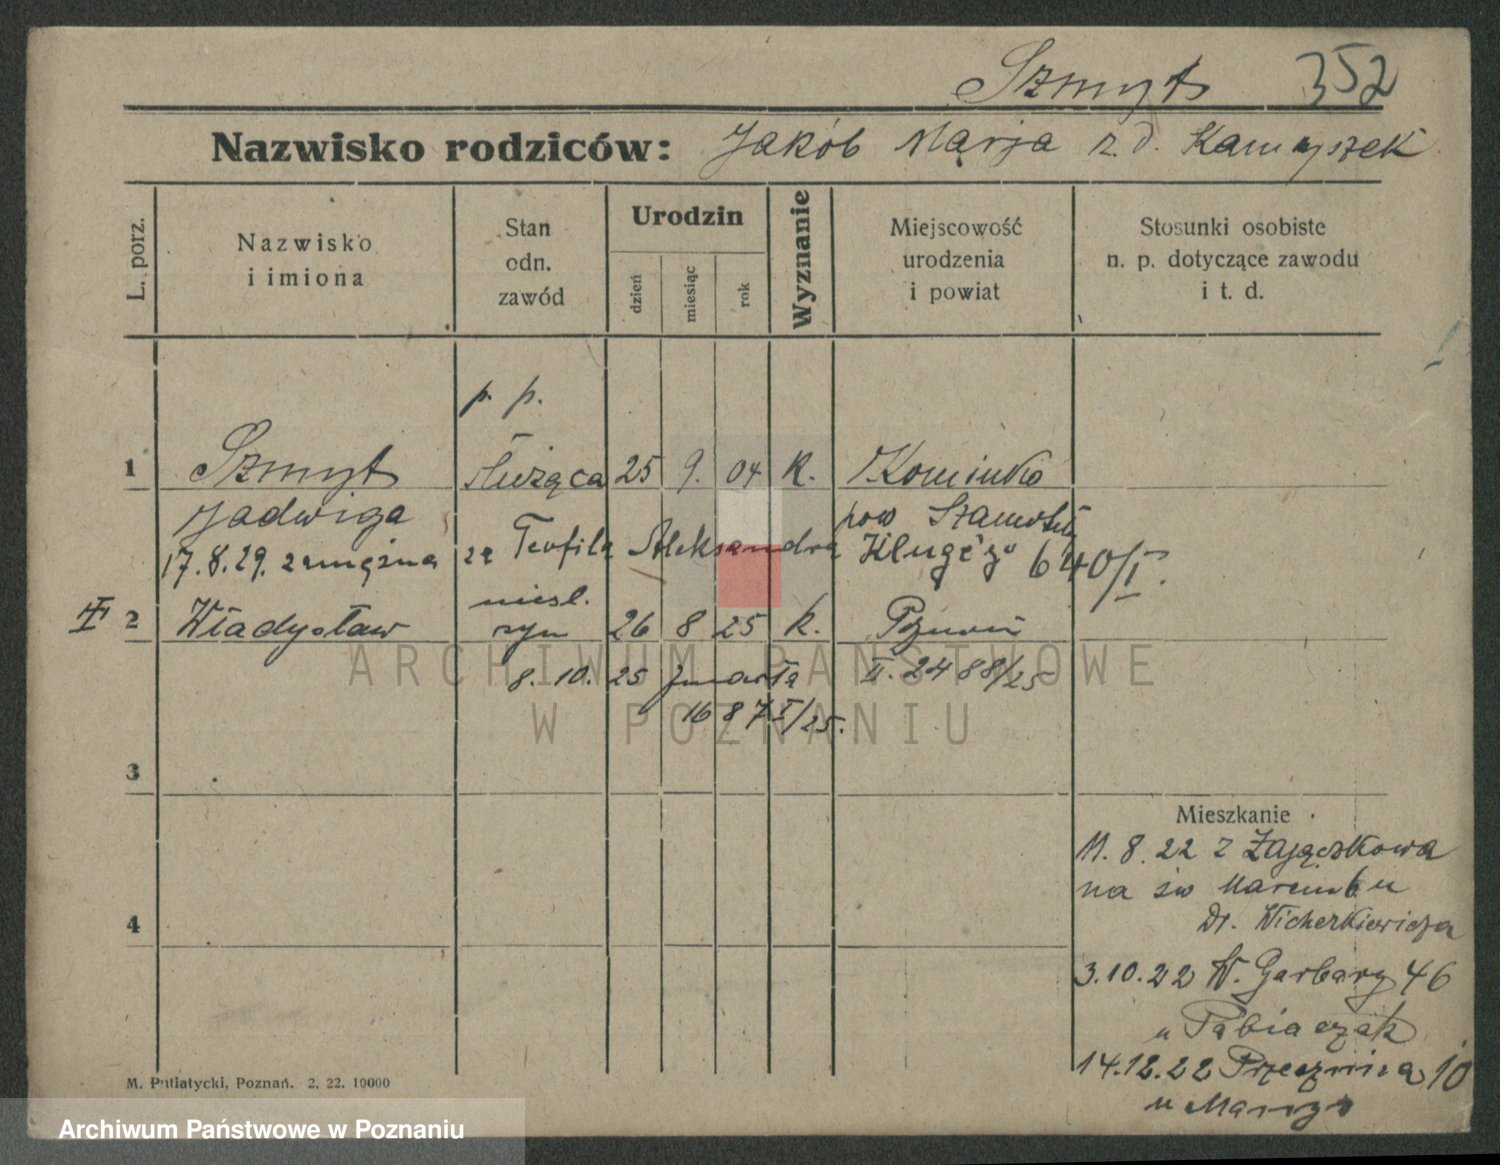 Szmyt 352
Nazwisko rodziców: Jakób Marja z d. Kamyszek
L. porz.
Nazwisko
i imiona
Stan
odn.
zawód
Urodzin
dzień
miesiąc
rok
Wyznanie
Miejscowość
urodzenia
i powiat
Stosunki osobiste
n. p. dotyczące zawodu
i t. d.
p. p.
1 Szmyt służąca 25 9. 04 k. Kominko
Jadwiga pow Szamotuły
17.8.29. zamężna za Teofila Aleksandra Klugego 640/I.
niesl.
II 2 Władysław syn 26 8 25 k. Poznań
8. 10. 25 zmarła II. 2488/25
1687 I/25.
3
4
Mieszkanie
11. 8. 22 z Zajączkowa
na św Marcin 6 u
Dr. Wicherkiewicza
3.10.22 W. Garbary 46
u
14.12.22 Przecznica 10
u
M. Putiatycki, Poznań. 2. 22. 10000
ARCHIWUM PAŃSTWOWE
W POZNANIU
Archiwum Państwowe w Poznaniu